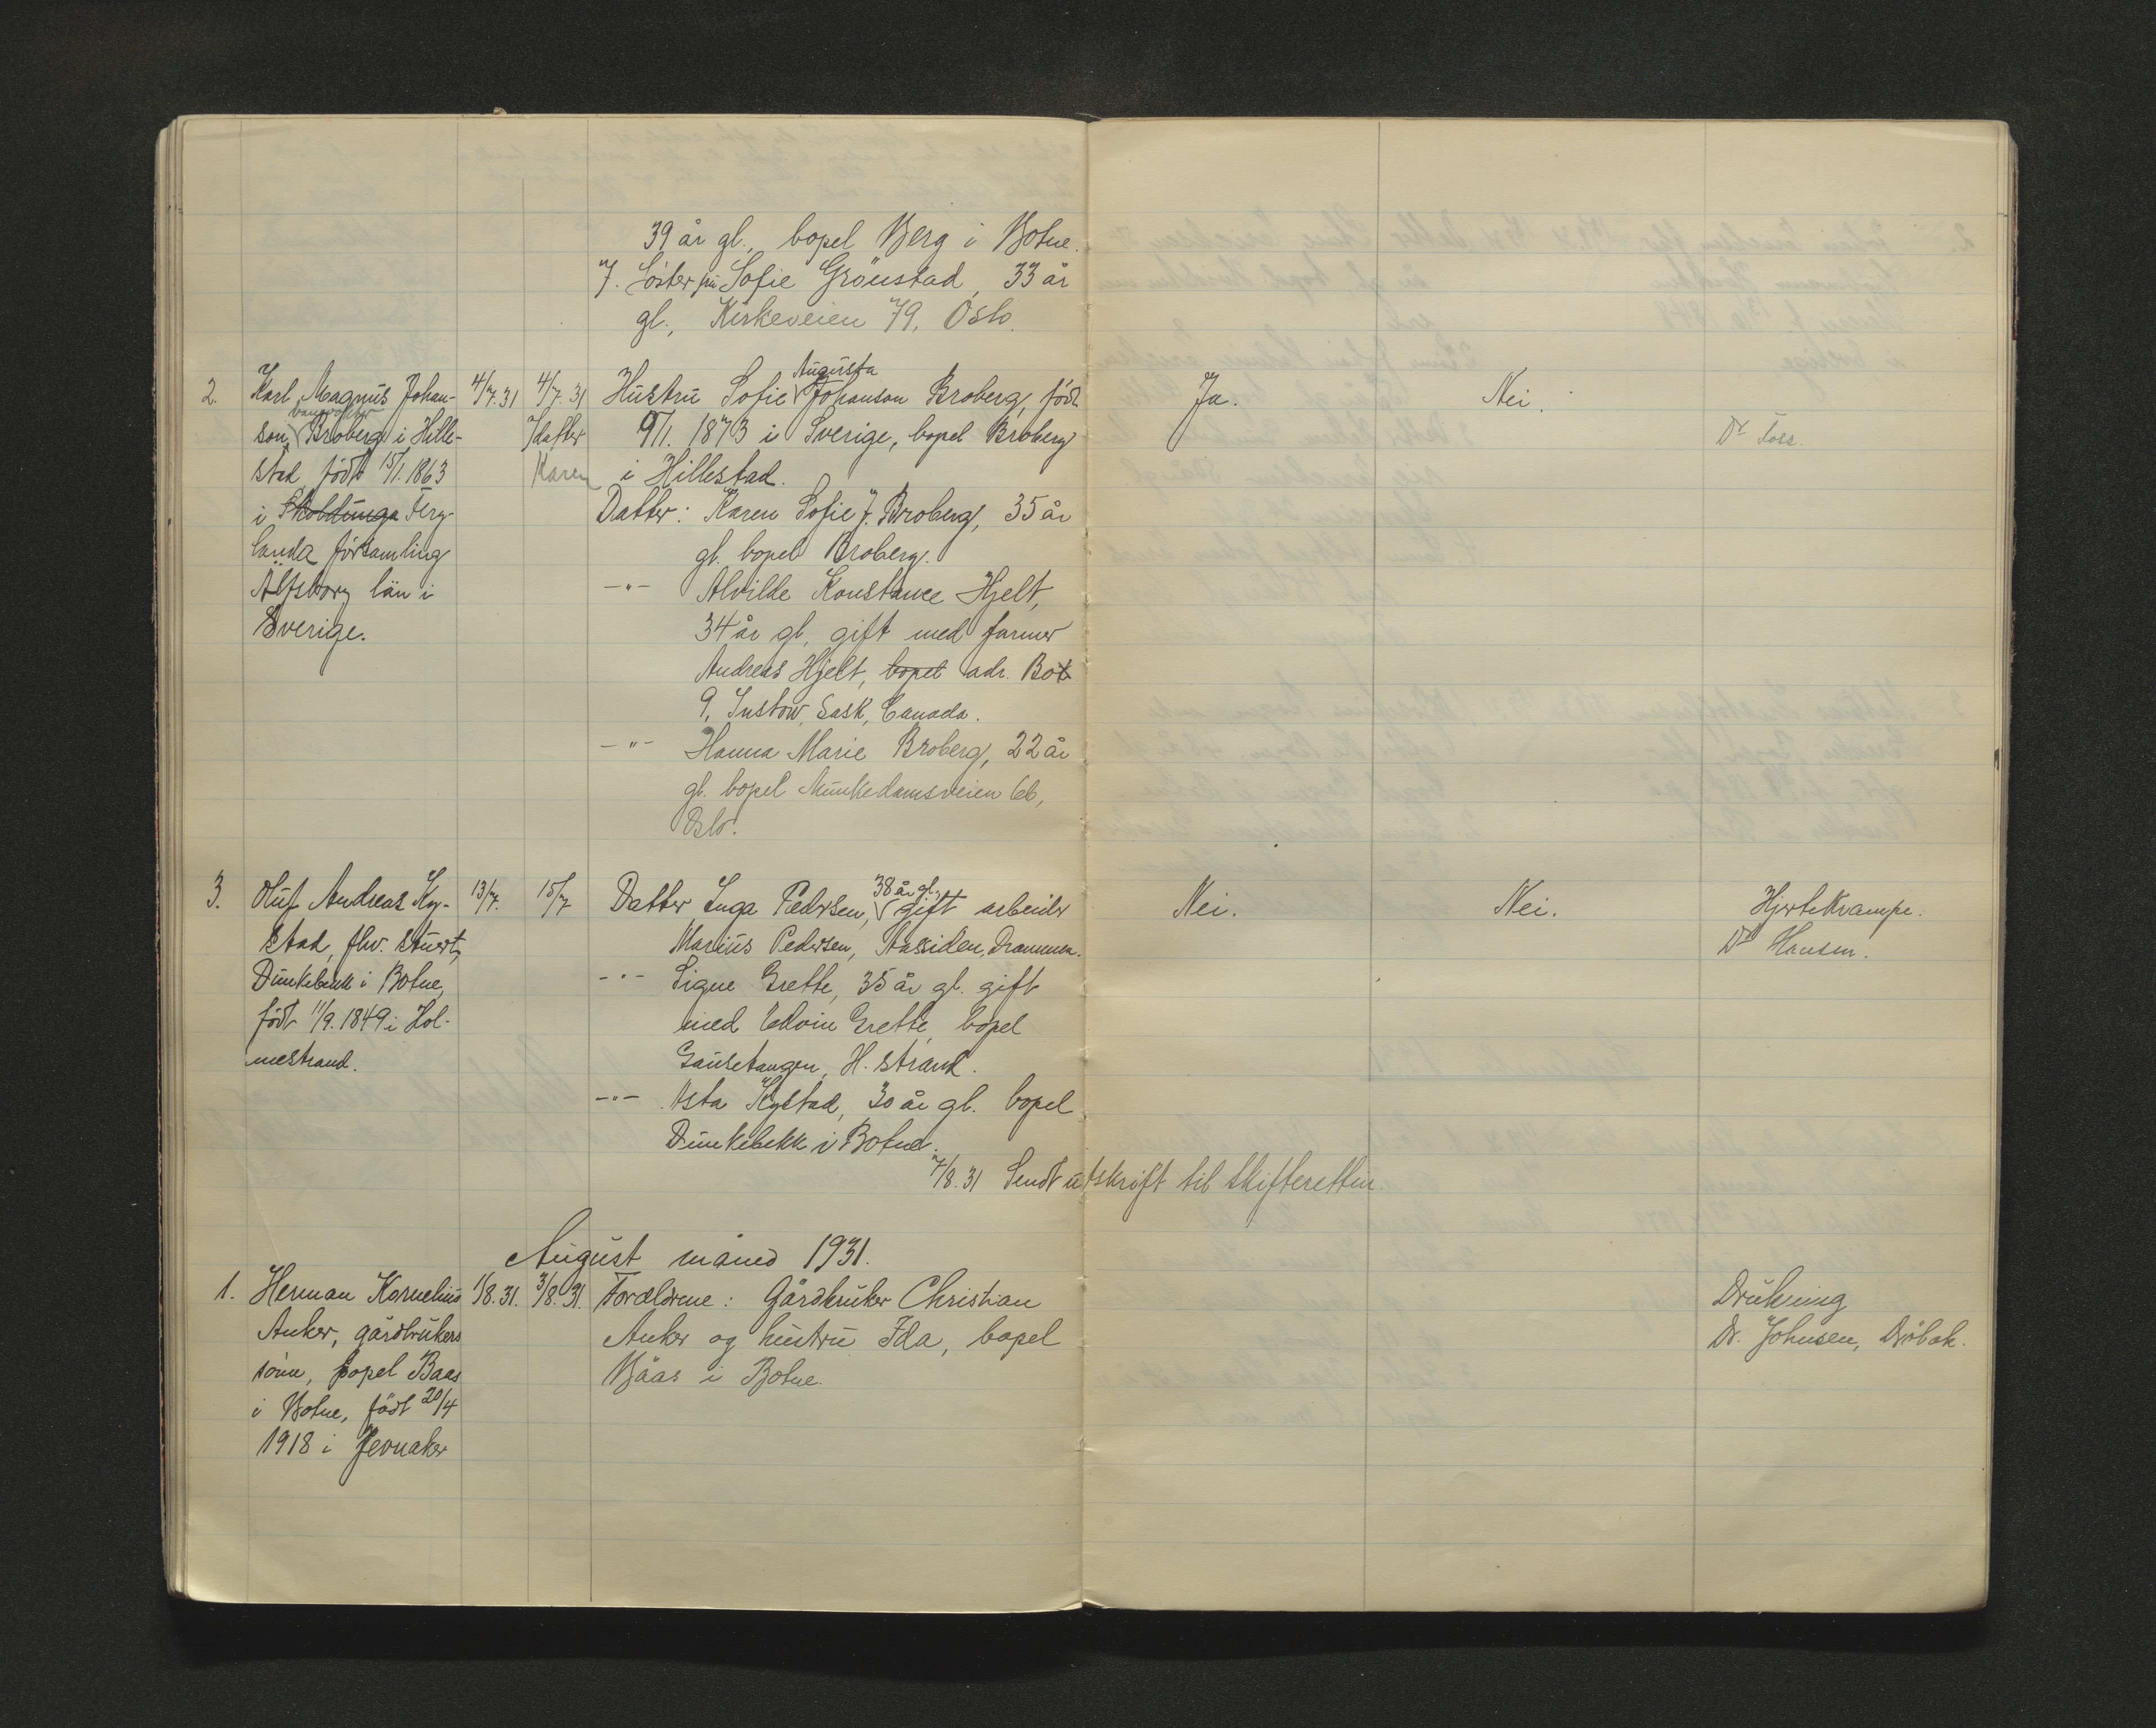 39 år gl., bopel Berg i Botne.
7. Söster frü Sofie Grönstad, 33 år
gl., Kirkeveien 79, Oslo.
2. Karl Magnus Johan- 4/7.31 4/7.31 Hustru Sofie Augusta Johanson Broberg, född Ja. Nei.
son, banevokter Broberg i Hille- /datter 9/1. 1873 i Sverige, bopel Broberg Dr
stad, född 15/1.1863 Karen i Hillestad.
i Färg- Datter: Karen Sofie J. Broberg, 35 år
landa församling gl. bopel Broberg.
Älfsborg län i -"- Alvilde Konstance Hjelt,
Sverige. 34 år gl, gift med farmer
Andreas Hjelt, bopel adr. Box
9, Instow, Sask, Canada.
-"- Hanna Marie Broberg, 22 år
gl. bopel Munkedamsveien 66,
Oslo.
3. Oluf Andreas Ky- 13/7. 15/7 Datter Inga Pedersen, 38 år gl., gift arbeider Nei. Nei. Hjertekrampe.
stad, fhv. stuert, Marius Pedersen, Aassiden, Drammen. Dr Hansen.
Dunkebekk i Botne, -"- Signe Grette, 35 år gl. gift
född 11/9.1849 i Hol- med Edvin Grette, bopel
mestrand. Gausetangen, H. strand.
-"- Asta Kystad, 30 år gl. bopel
Dunkebekk i Botne.
7/8.31 Sendt utskrift til skifteretten.
August måned 1931.
1. Herman Kornelius 1/8.31. 3/8.31. Forældrene: Gårdbruker Christian Drukning
Anker, gårdbrukers Anker og hustru Ida, bopel Dr. Johnsen, Dröbak.
sönn, bopel Baas Baas i Botne.
i Botne, född 20/4
1918 i Jevnaker